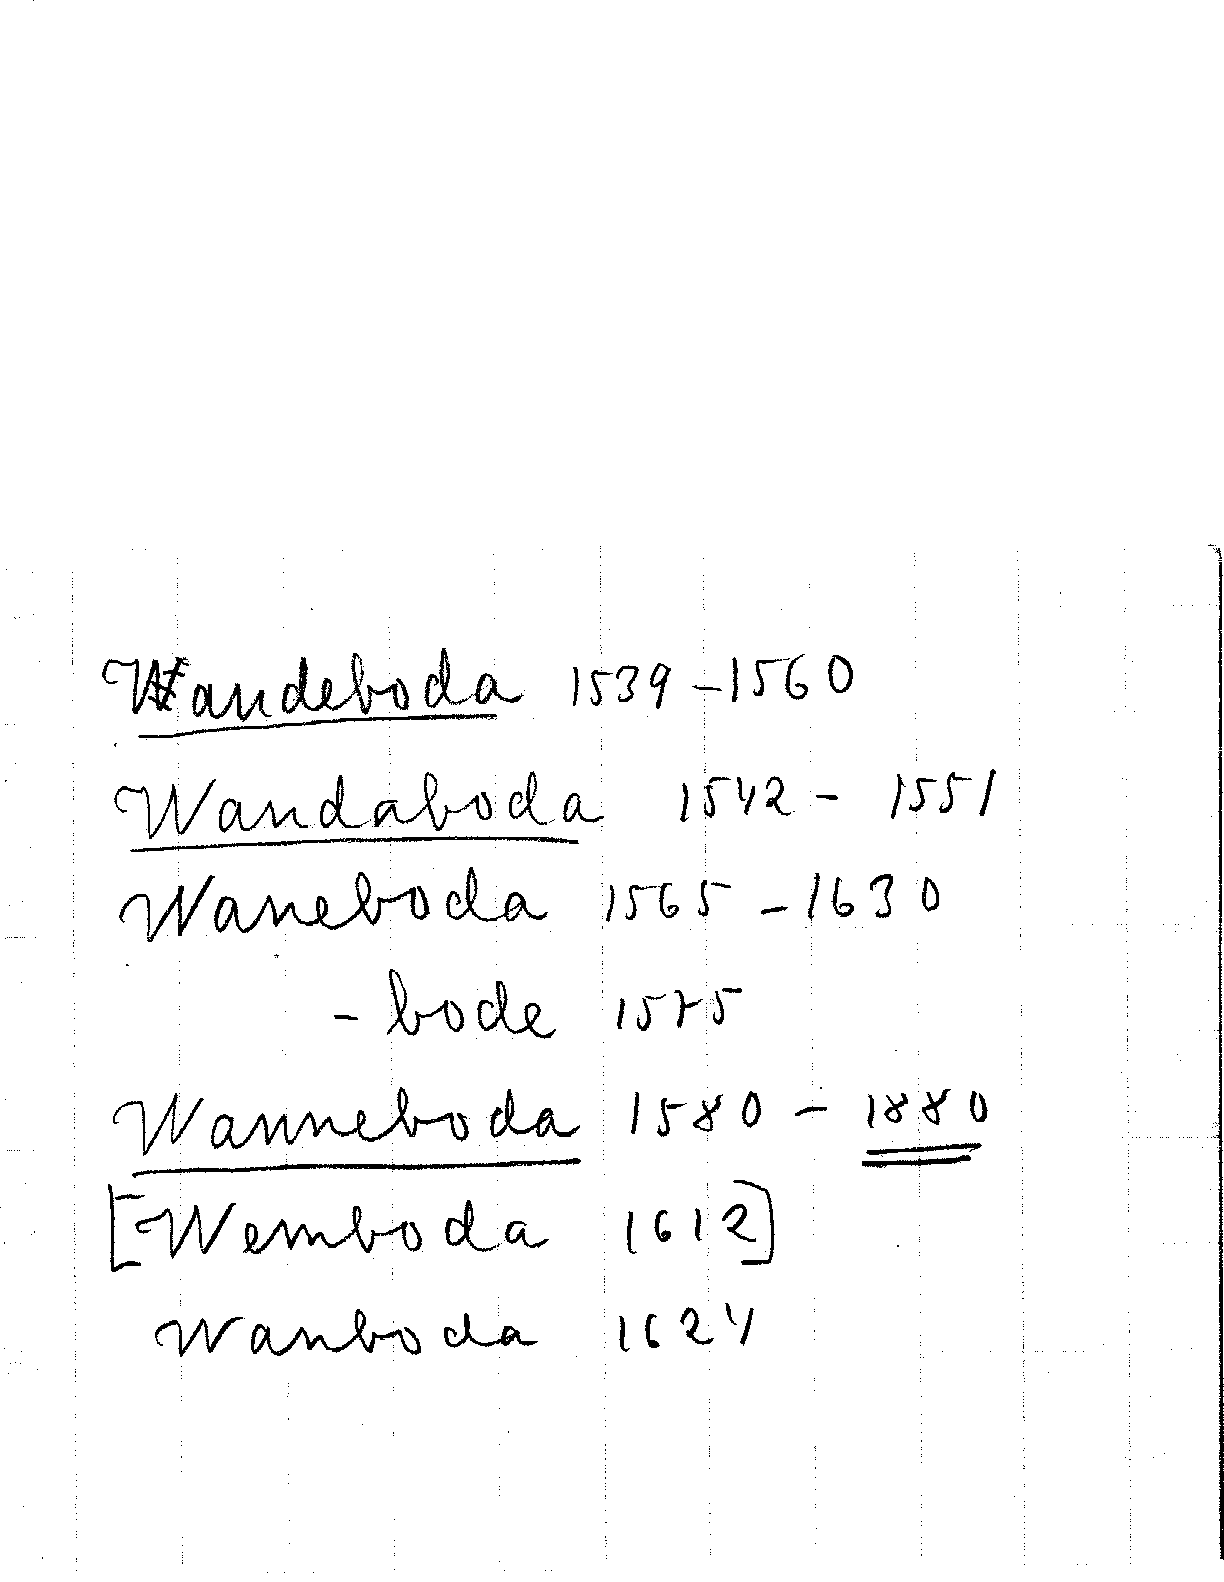 Wandeboda 1539 - 1560
Wandaboda 1542 - 1551
Waneboda 1565 - 1630
- bode 1575
Wanneboda 1580 - 1880
[Wemboda 1612]
Wanboda 1624